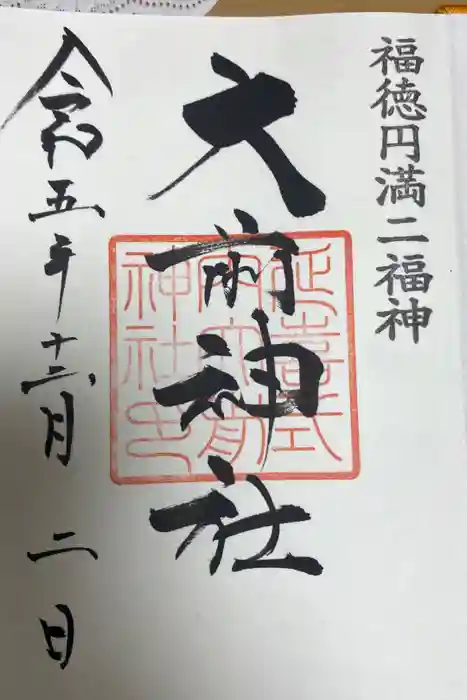 福徳円満二福神
大前神社
延喜式
内大前
神社也
令和五年十二月二日